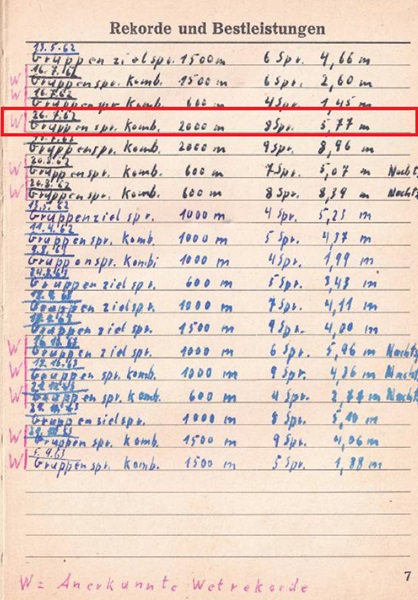 Rekorde und Bestleistungen
13.5.62
Gruppenzielspr. 1500 m 6 Spr. 4,66 m
16.7.62
W Gruppenspr. Komb. 1500 m 6 Spr. 2,60 m
16.7.62
W Gruppenspr. Komb. 600 m 4 Spr. 1,45 m
26.7.62
W Gruppenspr. Komb. 2000 m 8 Spr. 5,77 m
Gruppenspr. Komb. 2000 m 9 Spr. 8,96 m
W Gruppenspr. Komb. 600 m 7 Spr. 5,07 m Nachts
W Gruppenspr. Komb. 600 m 8 Spr. 8,39 m Nachts
13.5.62
Gruppenzielspr. 1000 m 4 Spr. 5,23 m
11.4.62
Gruppenspr. Komb. 1000 m 5 Spr. 4,37 m
Gruppenspr. Kombi 1000 m 4 Spr. 1,99 m
Gruppenzielspr. 600 m 5 Spr. 3,43 m
Gruppenzielspr. 1000 m 7 Spr. 4,11 m
Gruppenzielspr. 1500 m 9 Spr. 4,00 m
W Gruppenzielspr. 1000 m 6 Spr. 5,96 m Nachts
W Gruppenspr. Komb. 1000 m 9 Spr. 4,86 m Nachts
W Gruppenspr. Komb. 600 m 4 Spr. 2,77 m Nachts
Gruppenzielspr. 1000 m 8 Spr. 5,10 m
W Gruppenspr. Komb. 1500 m 9 Spr. 4,06 m
W Gruppenspr. Komb. 1500 m 5 Spr. 1,88 m
7
W = Anerkannte Wetrekorde